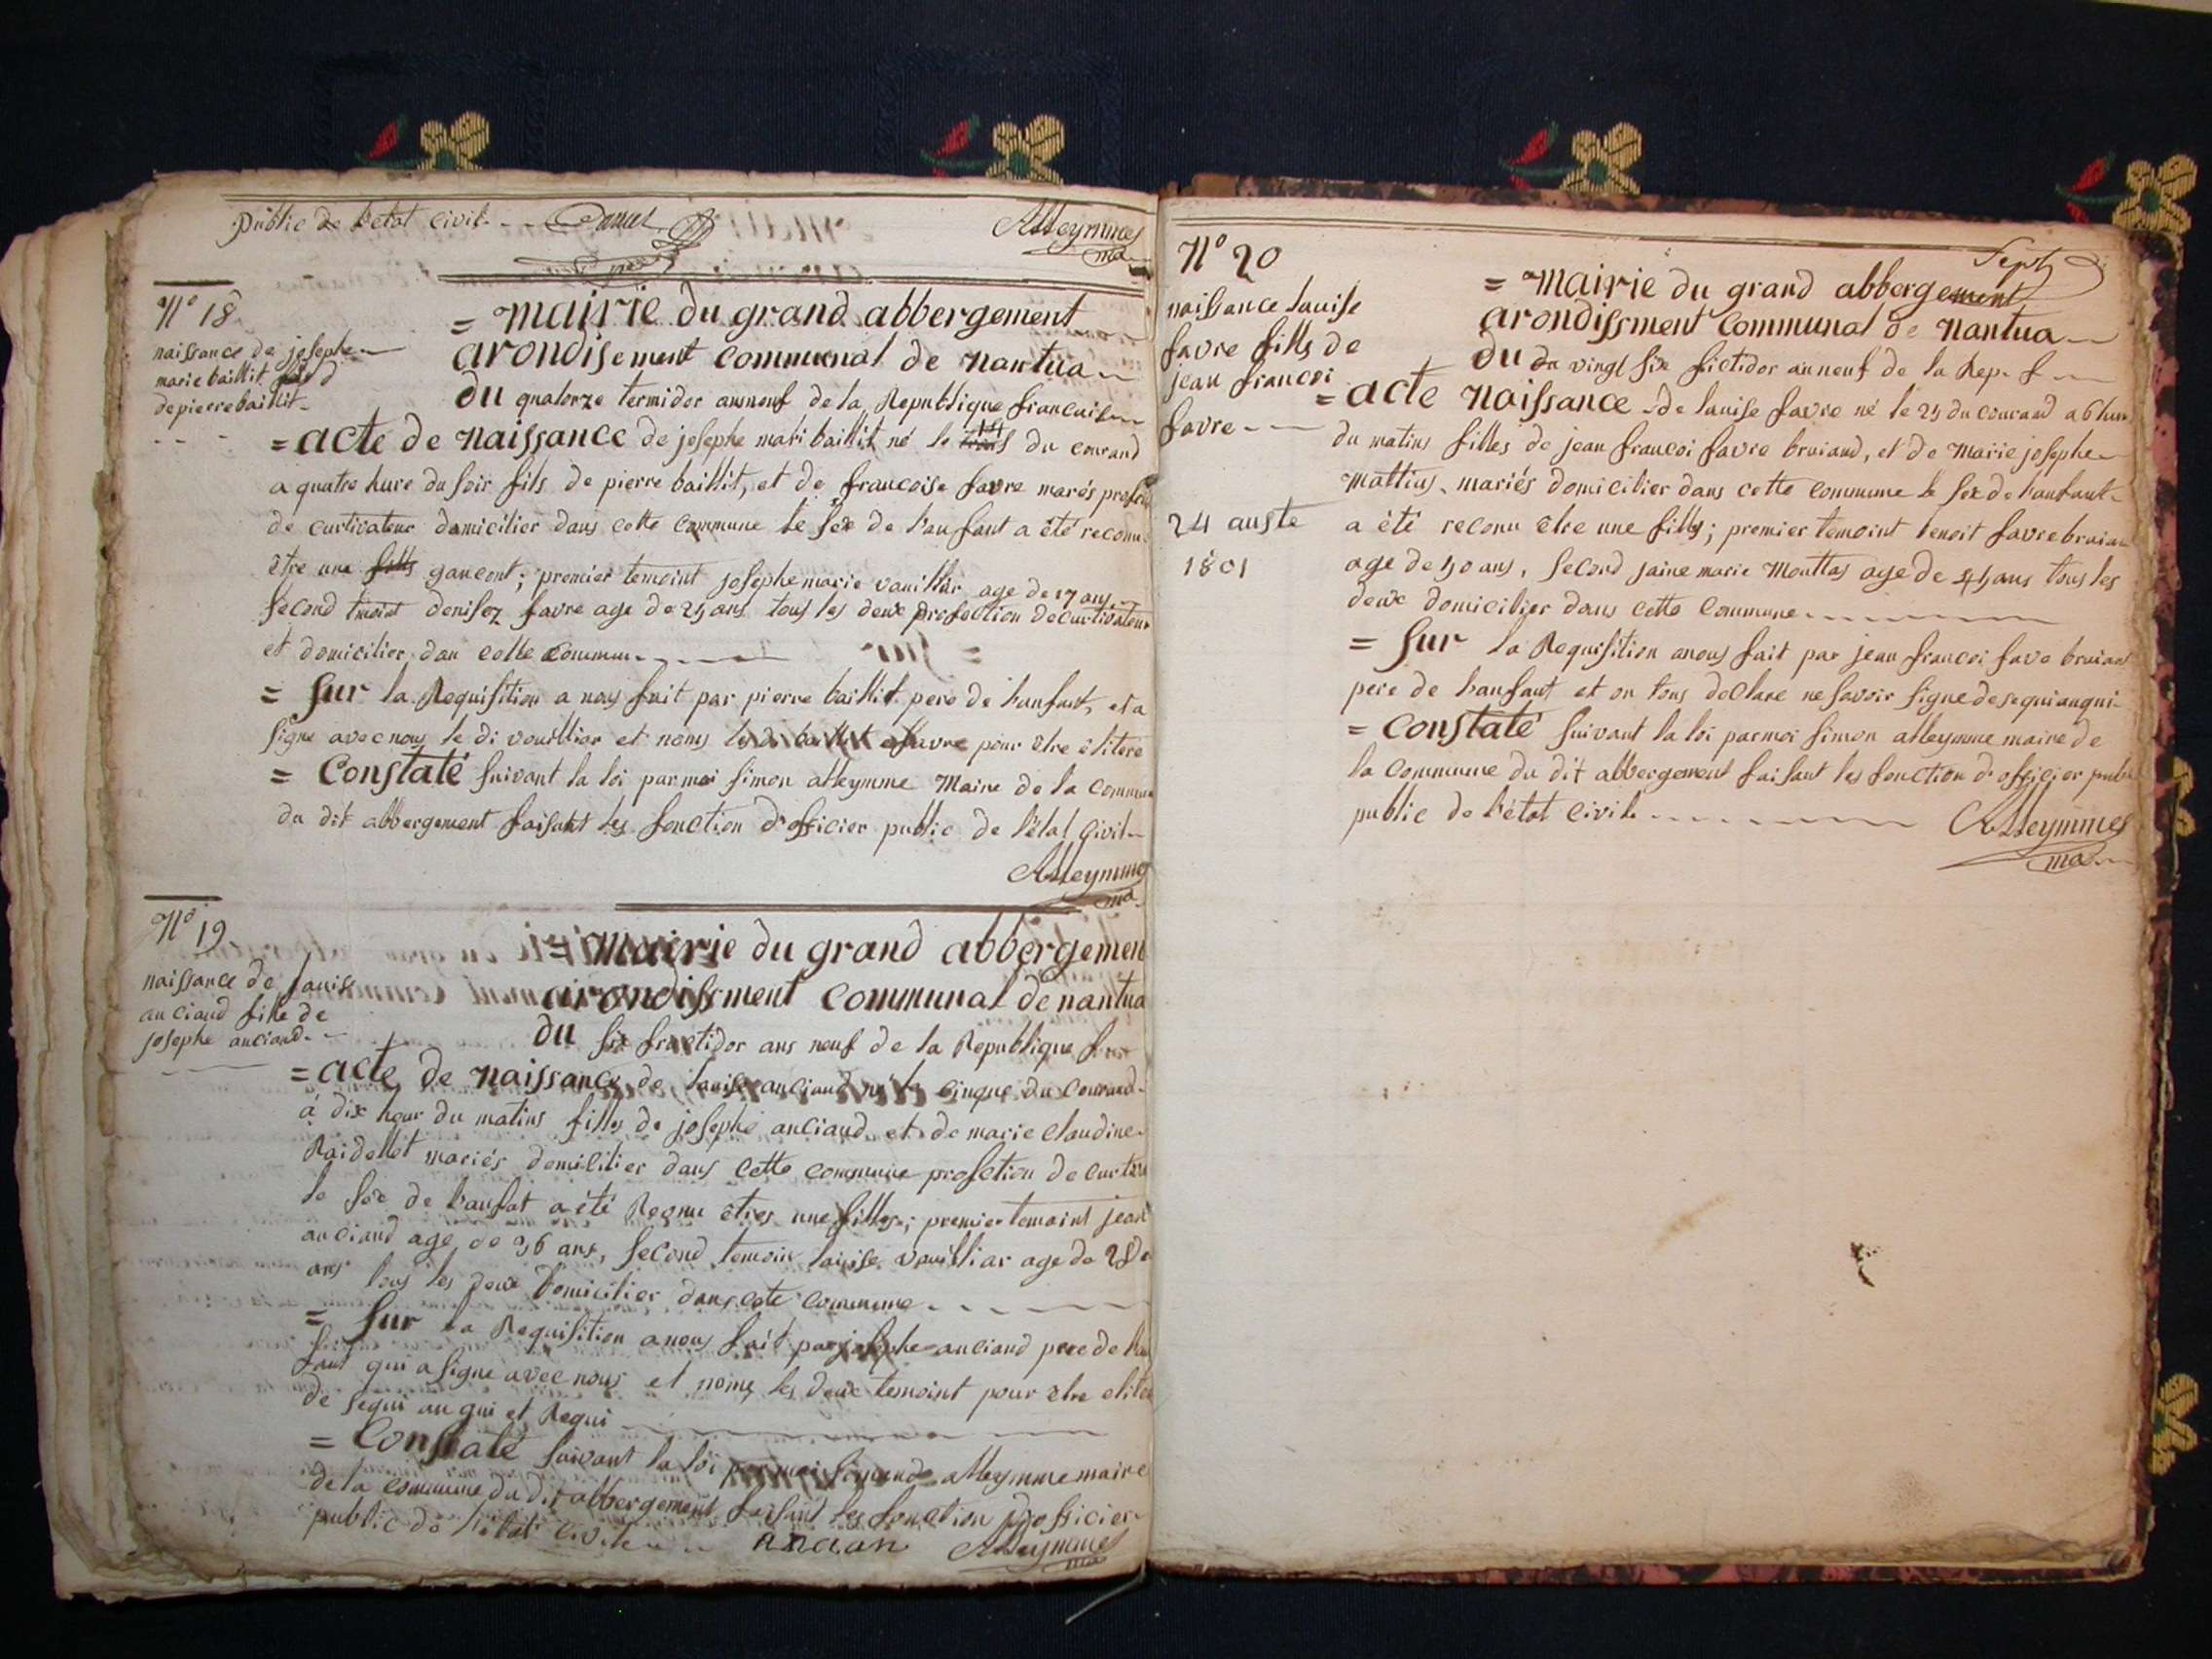 public de l'etat civil
Alleymmes
ma
N° 18
naissance de josephe
marie baillit
de pierre baillit
= mairie du grand abbergement
arondisement communal de nantua
du quatorze termidor ans neuf de la Republique francaise
= acte de naissance de josephe mari baillit né le 14 du courand
a quatre hure du soir fils de pierre baillit, et de francoise favre marés
de curtivateur domicilier dans cette commune le sexe de l'anfant a été reconu
être une gancont; premier temoint josephe marie vauillar age de 27 ans
second tmoint denisez favre age de 25 ans tous les deux profection de curtivateur
et domicilier dan cette commun
= sur la Requisition a nous fait par pierre baillit pere de l'anfant, et a
signe avec nous le di vouillior et nomis favre pour être elitere
= Constaté suivant la loi par moi simon alleymme maire de la commune
du dit abbergement faisant les fonction d'officier public de l'etat Civil
Alleymmes
ma
N° 19
naissance de lauise
anciand fille de
josephe anciand
= mairie du grand abbergemen
arondissment communal de nantua
du six fructidor ans neuf de la Republique
= acte de naissance de lauise anciand né le cinque du courand
à dix heur du matins filles de josephe anciand et de marie claudine
Raidellet mariés domicilier dans cette commune profection de
le sexe de l'anfat a été Reqnu etres une filles; premier temoint jean
anciand age de 36 ans, second temoin laisse vauilliar age de 28
ans tous les deux domicilier dans cete commune
= sur la Requisition a nous fait par josephe anciand pere de
fant qui a signe avec nous et noms les deux temoint pour être
de sequi an qui et Requi
= Constaté suivant la loi par moi alleymme maire
de la commune du dit abbergement faisant les fonction d'officier
public de l'etat civile
ancian
Alleymmes
ma
N° 20
naissance lauise
favre fills de
jean francoi
favre
24 auste
1801
Sept
= mairie du grand abbergement
arondissment communal de nantua
du du vingt six fictidor an neuf de la Rep. f
= acte naissance de lauise favre né le 25 du courand a 6 hure
du matins filles de jean francoi favre bruiand, et de marie josephe
mattius, mariés domicilier dans cette commune le sex de l'anfant
a été reconu être une fills; premier temoint benoit favre bruian
age de 50 ans, second jaine marie mouttas age de ans tous les
deux domicilier dans cette commune
= sur la Requisition a nous fait par jean francoi favre bruiant
pere de l'anfant et on tous declare ne savoir signe de sequi anqui
= Constaté suivant la loi par moi simon alleymme maire de
la commune du dit abbergement faisant les fonction d'officier
public de l'état civil
Alleymmes
ma